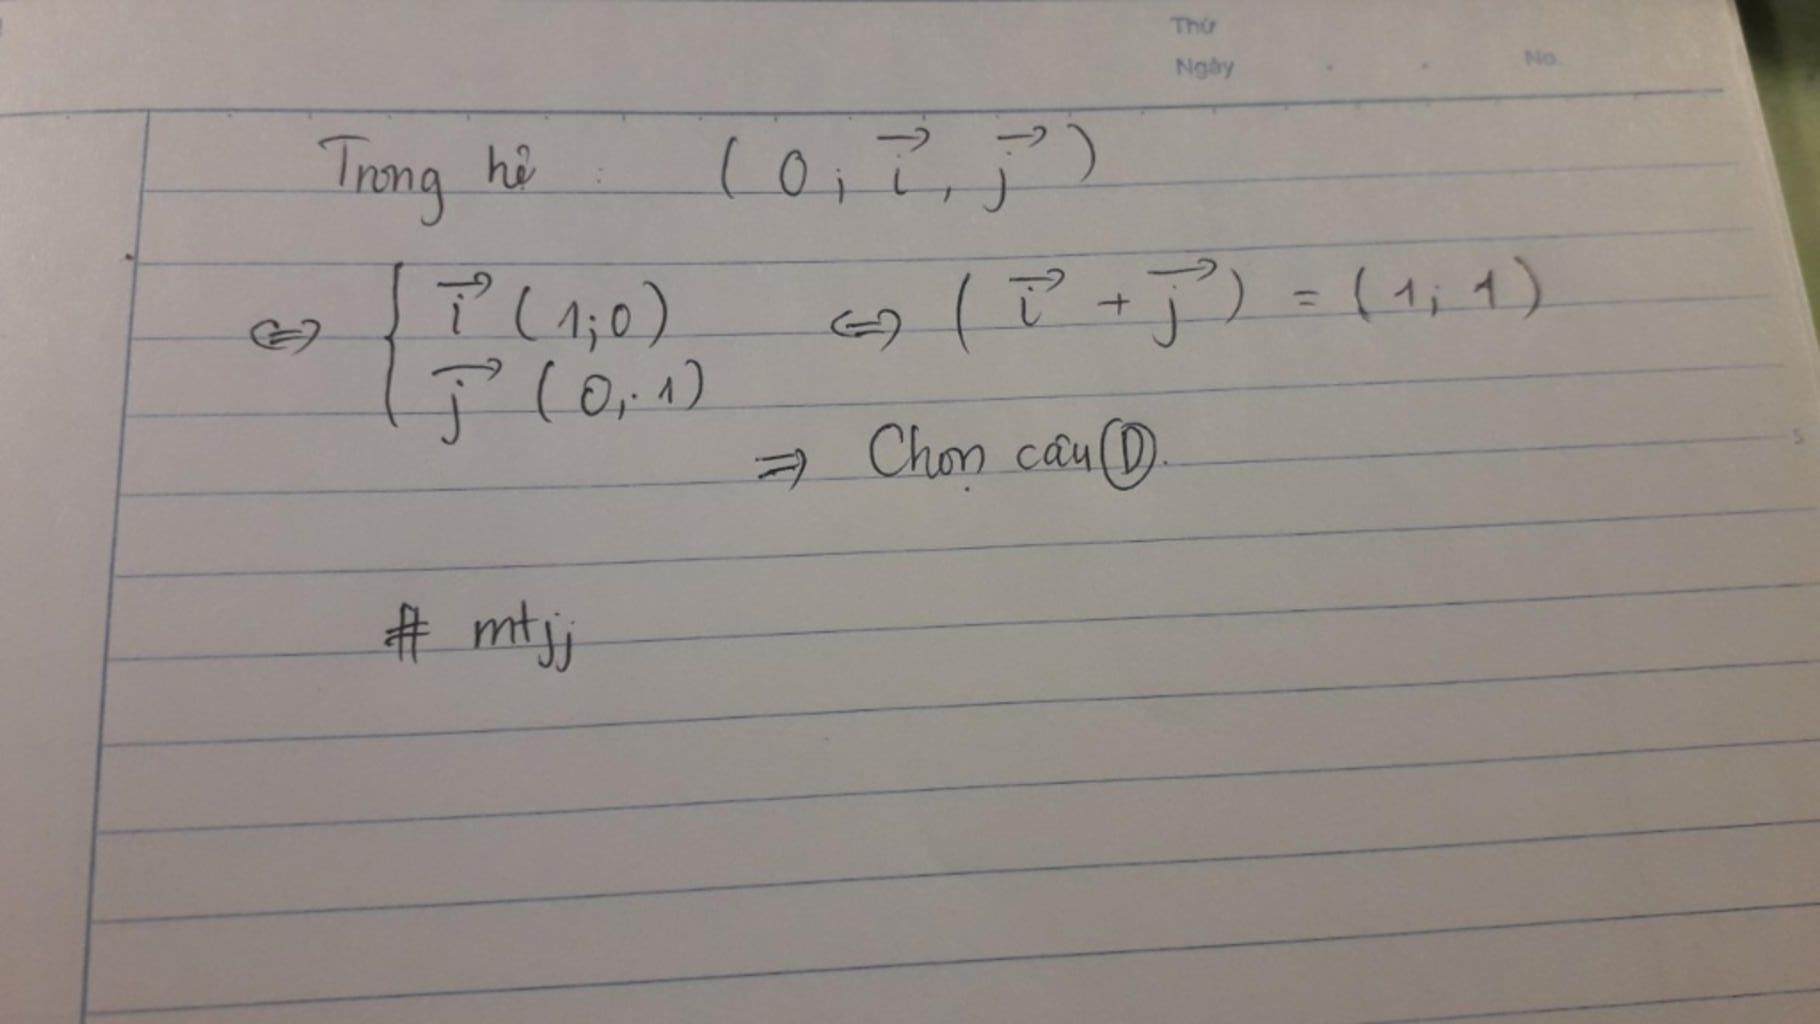 Thứ
Ngày . . No.
Trong hệ : ( O ; i⃗ , j⃗ )
⇔ { i⃗ ( 1 ; 0 ) ⇔ ( i⃗ + j⃗ ) = ( 1 ; 1 )
j⃗ ( 0 ; 1 )
⇒ Chọn câu Ⓓ.
# mtjj